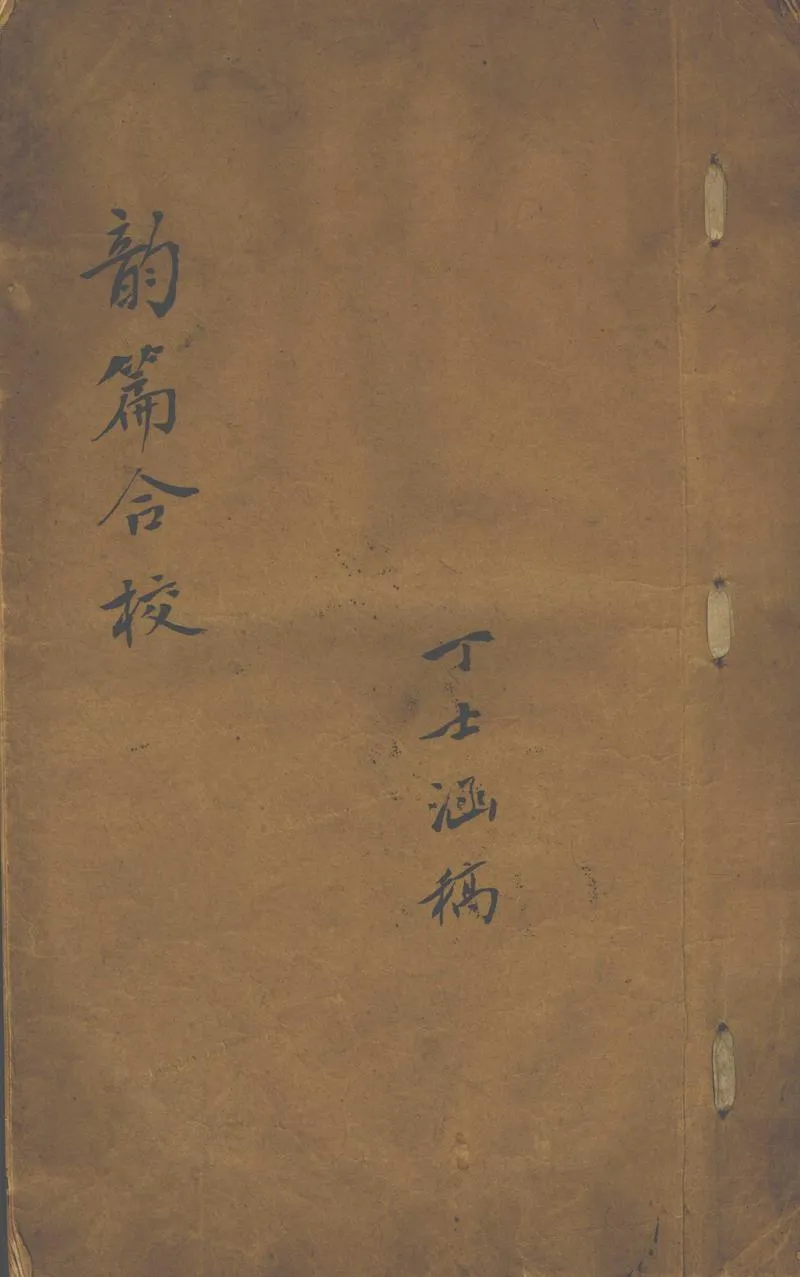 韵篇合校
丁士涵稿